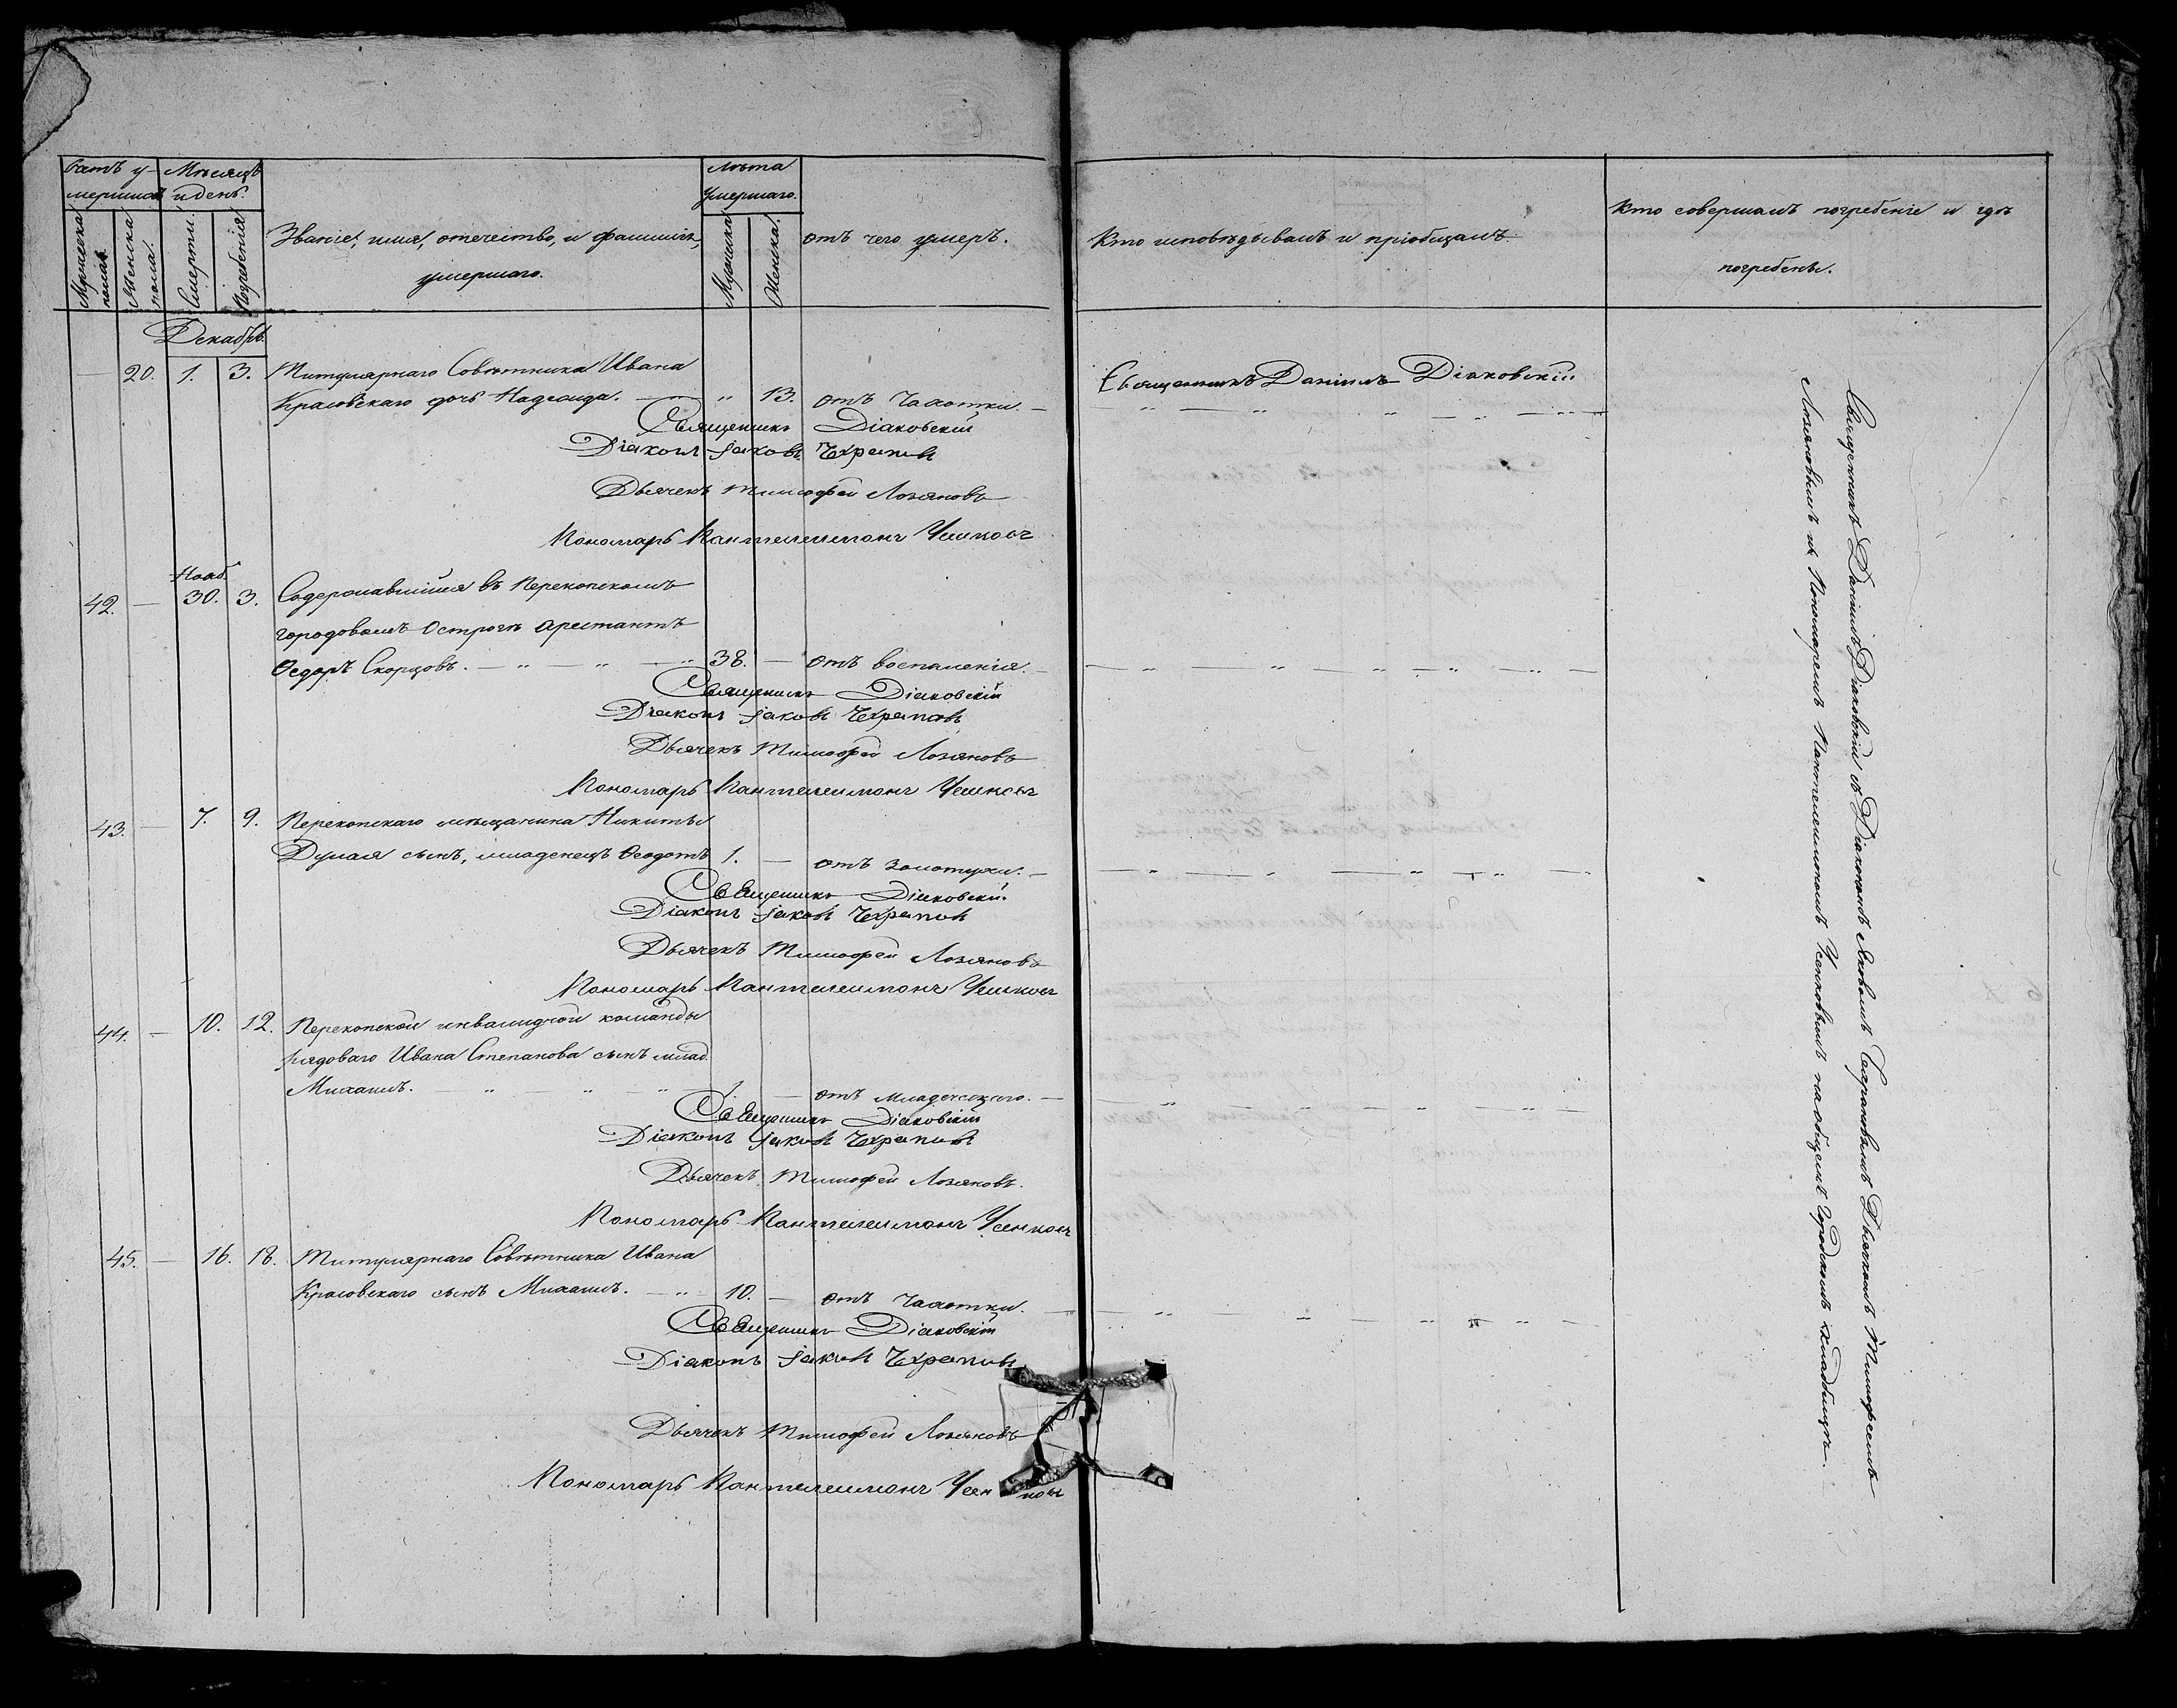 Счетъ у-
мершихъ
Мѣсяцъ
и день.
Мужеска
пола.
Женска
пола.
Смерти.
Погребенія
Званіе, имя, отечество, и фамилія,
умершаго.
Лѣта
Умершаго.
Мужеска
Женска.
отъ чего умеръ.
Кто исповѣдывалъ и пріобщалъ.
Кто совершалъ погребеніе и гдѣ
погребены.
Декабрь.
— 20. 1. 3. Титулярнаго Совѣтника Ивана
Красовскаго дочь Надежда. — " 13. отъ Чахотки. —
Священникъ Даніилъ Діаковскій
Священникъ Діаковскій
Діаконъ Іаковъ Чехрановъ
Дьячекъ Тимофей Лозановъ
Пономарь Пантелеимонъ Усенковъ
Нояб.
42. — 30. 3. Содержавшійся въ Перекопскомъ
городовомъ Острогѣ арестантъ
Ѳедоръ Скорцовъ. — " — " — " 38. — отъ воспаленія. —
Священникъ Діаковскій
Діаконъ Іаковъ Чехрановъ
Дьячекъ Тимофей Лозановъ
Пономарь Пантелеимонъ Усенковъ
43. — 7. 9. Перекопскаго мѣщанина Никиты
сынъ, младенецъ Ѳеодотъ 1. — отъ золотухи. —
Священникъ Діаковскій.
Діаконъ Іаковъ Чехрановъ
Дьячекъ Тимофей Лозановъ
Пономарь Пантелеимонъ Усенковъ
44. — 10. 12. Перекопской инвалидной команды
рядоваго Ивана Степанова сынъ млад.
Михаилъ. — " — " — " 1. — отъ младенческаго. —
Священникъ Діаковскій
Діаконъ Іаковъ Чехрановъ
Дьячекъ Тимофей Лозановъ.
Пономарь Пантелеимонъ Усенковъ
45. — 16. 18. Титулярнаго Совѣтника Ивана
Красовскаго сынъ Михаилъ. — " 10. — отъ Чахотки. —
Священникъ Діаковскій
Діаконъ Іаковъ Чехрановъ
Дьячекъ Тимофей Лозановъ
Пономарь Пантелеимонъ Усенковъ
Священникъ Даніилъ Діаковскій съ Діакономъ Яковомъ Чехрановымъ Дьячкомъ Тимофеемъ
Лозановымъ и Пономаремъ Пантелеимономъ Усенковымъ на общемъ Городскомъ кладбищѣ.